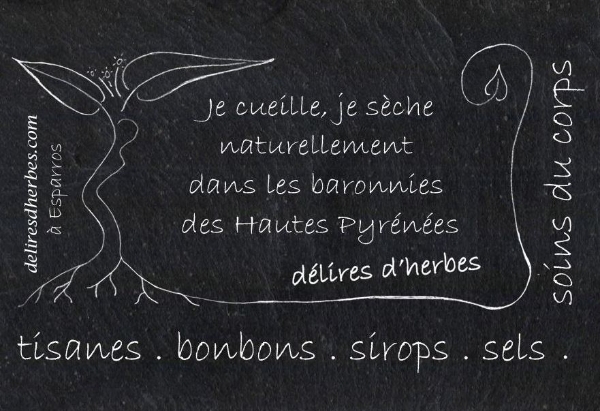 deliresdherbes.com
à Esparros
Je cueille, je sèche
naturellement
dans les baronnies
des Hautes Pyrénées
délires d'herbes
soins du corps
tisanes . bonbons . sirops . sels .